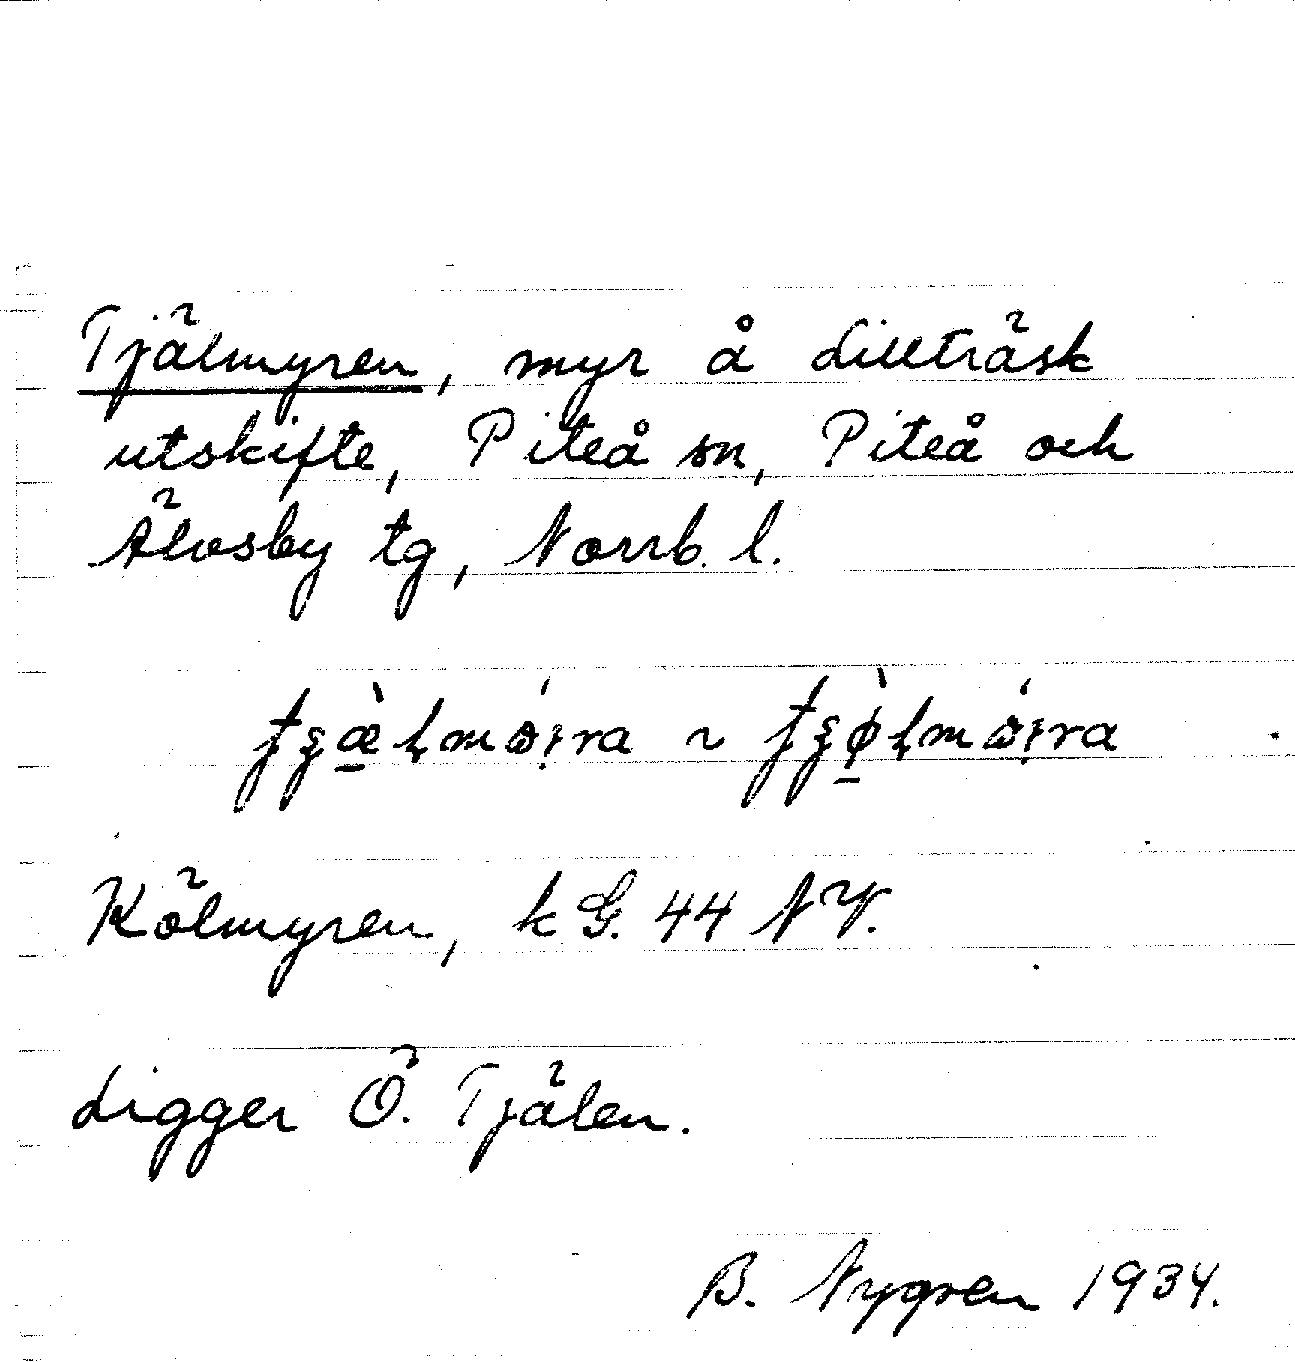 Tjälmyren, myr å Lillträsk
utskifte, Piteå sn, Piteå och
Älvsby tg, Norrb. l.
Kölmyren, kG. 44 NV.
Ligger Ö. Tjälen.
B. Nygren 1934.